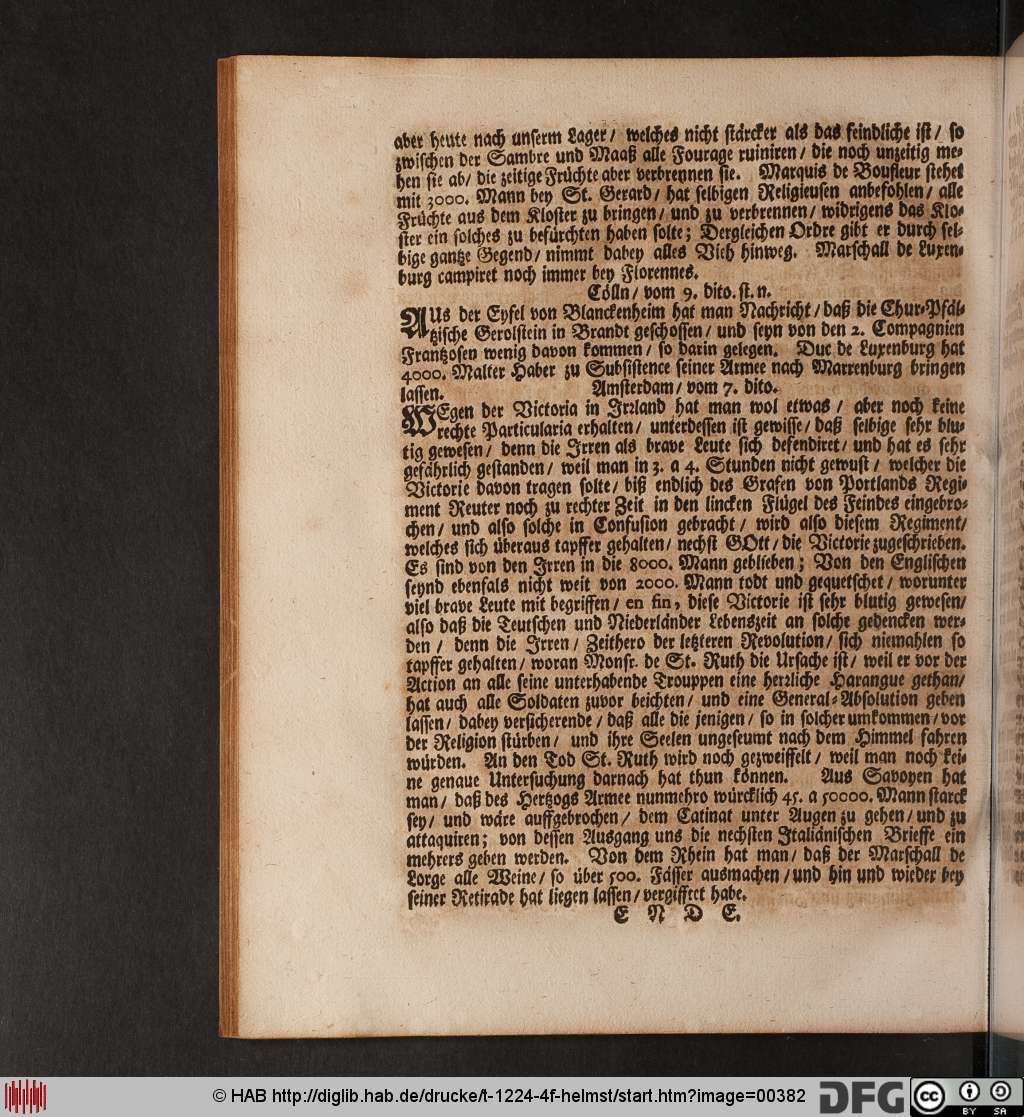 aber heute nach unserm Lager / welches nicht stärcker als das feindliche ist / so
zwischen der Sambre und Maaß alle Fourage ruiniren / die noch unzeitig me-
hen sie ab / die zeitige Früchte aber verbrennen sie. Marquis de Boufleur stehet
mit 3000. Mann bey St. Gerard / hat selbigen Religieusen anbefohlen / alle
Früchte aus dem Kloster zu bringen / und zu verbrennen / widrigens das Klo-
ster ein solches zu befürchten haben solte; Dergleichen Ordre gibt er durch sel-
bige gantze Gegend / nimmt dabey alles Vieh hinweg. Marschall de Luxen-
burg campiret noch immer bey Florennes.
Cölln / vom 9. dito. st. n.
AUs der Eyfel von Blanckenheim hat man Nachricht / daß die Chur-Pfäl-
tzische Gerolstein in Brandt geschossen / und seyn von den 2. Compagnien
Frantzosen wenig davon kommen / so darin gelegen. Duc de Luxenburg hat
4000. Malter Haber zu Subsistence seiner Armee nach Marrenburg bringen
lassen. Amsterdam / vom 7. dito.
WEgen der Victoria in Irrland hat man wol etwas / aber noch keine
rechte Particularia erhalten / unterdessen ist gewisse / daß selbige sehr blu-
tig gewesen / denn die Irren als brave Leute sich defendiret / und hat es sehr
gefährlich gestanden / weil man in 3. a 4. Stunden nicht gewust / welcher die
Victorie davon tragen solte / biß endlich des Grafen von Portlands Regi-
ment Reuter noch zu rechter Zeit in den lincken Flügel des Feindes eingebro-
chen / und also solche in Confusion gebracht / wird also diesem Regiment /
welches sich überaus tapffer gehalten / nechst GOtt / die Victorie zugeschrieben.
Es sind von den Irren in die 8000. Mann geblieben; Von den Englischen
seynd ebenfals nicht weit von 2000. Mann todt und gequetschet / worunter
viel brave Leute mit begriffen / en fin, diese Victorie ist sehr blutig gewesen /
also daß die Teutschen und Niederländer Lebenszeit an solche gedencken wer-
den / denn die Irren / Zeithero der letzteren Revolution / sich niemahlen so
tapffer gehalten / woran Monsr. de St. Ruth die Ursache ist / weil er vor der
Action an alle seine unterhabende Trouppen eine herrliche Harangue gethan /
hat auch alle Soldaten zuvor beichten / und eine General-Absolution geben
lassen / dabey versicherende / daß alle die jenigen / so in solcher umkommen / vor
der Religion stürben / und ihre Seelen ungeseumt nach dem Himmel fahren
würden. An den Tod St. Ruth wird noch gezweiffelt / weil man noch kei-
ne genaue Untersuchung darnach hat thun können. Aus Savoyen hat
man / daß des Hertzogs Armee nunmehro würcklich 45. a 50000. Mann starck
sey / und wäre auffgebrochen / dem Catinat unter Augen zu gehen / und zu
attaquiren; von dessen Ausgang uns die nechsten Italiänischen Brieffe ein
mehrers geben werden. Von dem Rhein hat man / daß der Marschall de
Lorge alle Weine / so über 500. Fässer ausmachen / und hin und wieder bey
seiner Retirade hat liegen lassen / vergifftet habe.
E N D E.
© HAB http://diglib.hab.de/drucke/t-1224-4f-helmst/start.htm?image=00382
DFG
cc BY SA